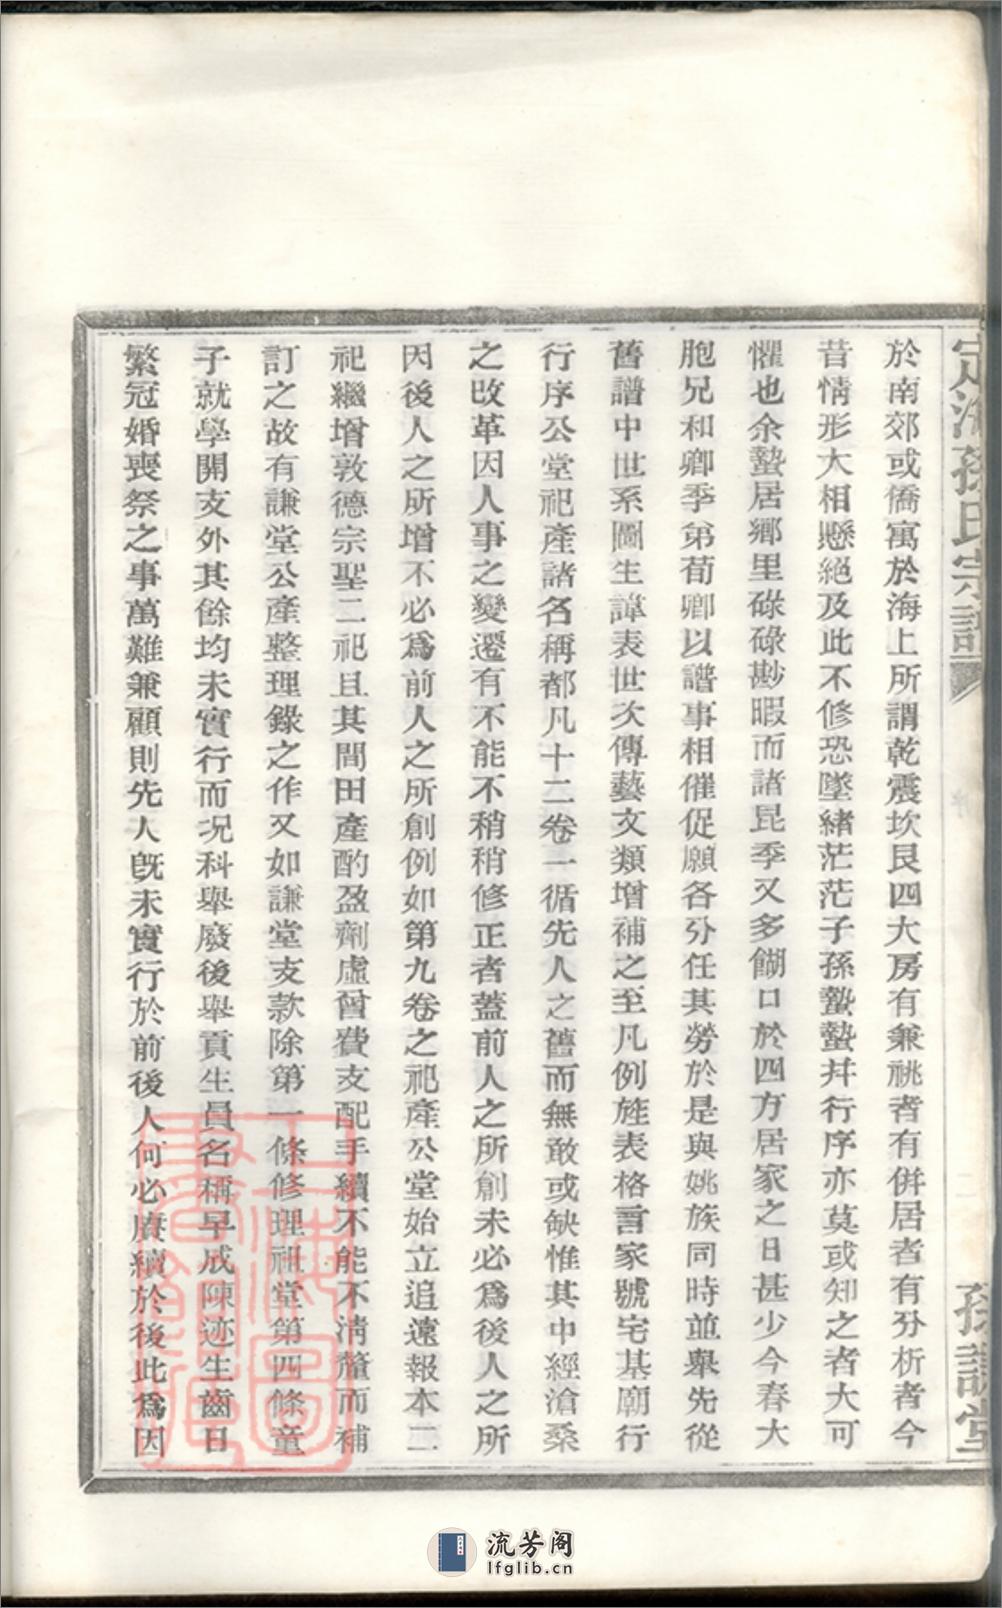 定海孫氏宗譜
二
孫謙堂
於南郊或僑寓於海上所謂乾震坎艮四大房有兼祧者有併居者有分析者今
昔情形大相懸絕及此不修恐墜緒茫茫子孫蟄蟄并行序亦莫或知之者大可
懼也余蟄居鄉里碌碌尠暇而諸昆季又多餬口於四方居家之日甚少今春大
胞兄和卿季弟荀卿以譜事相催促願各分任其勞於是與姚族同時並舉先從
舊譜中世系圖生諱表世次傳藝文類增補之至凡例旌表格言家號宅基廟行
行序公堂祀產諸名稱都凡十二卷一循先人之舊而無敢或缺惟其中經滄桑
之改革因人事之變遷有不能不稍稍修正者蓋前人之所創未必爲後人之所
因後人之所增不必爲前人之所創例如第九卷之祀產公堂始立追遠報本二
祀繼增敦德宗聖二祀且其間田產酌盈劑虛曾費支配手續不能不清釐而補
訂之故有謙堂公產整理錄之作又如謙堂支款除第一條修理祖堂第四條童
子就學開支外其餘均未實行而况科舉廢後舉貢生員名稱早成陳迹生齒日
繁冠婚喪祭之事萬難兼顧則先人旣未實行於前後人何必賡續於後此爲因
上海圖書館藏
流芳阁
lfglib.cn